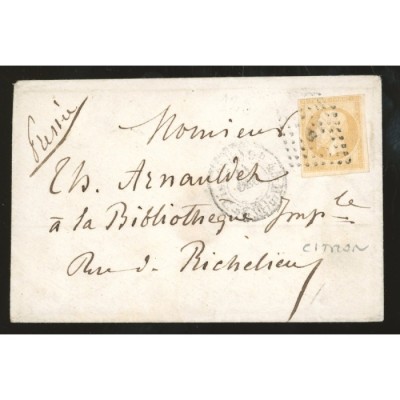 Pressée
Monsieur
Th. Arnauldet
à la Bibliothèque Imple
Rue de Richelieu
CITRON